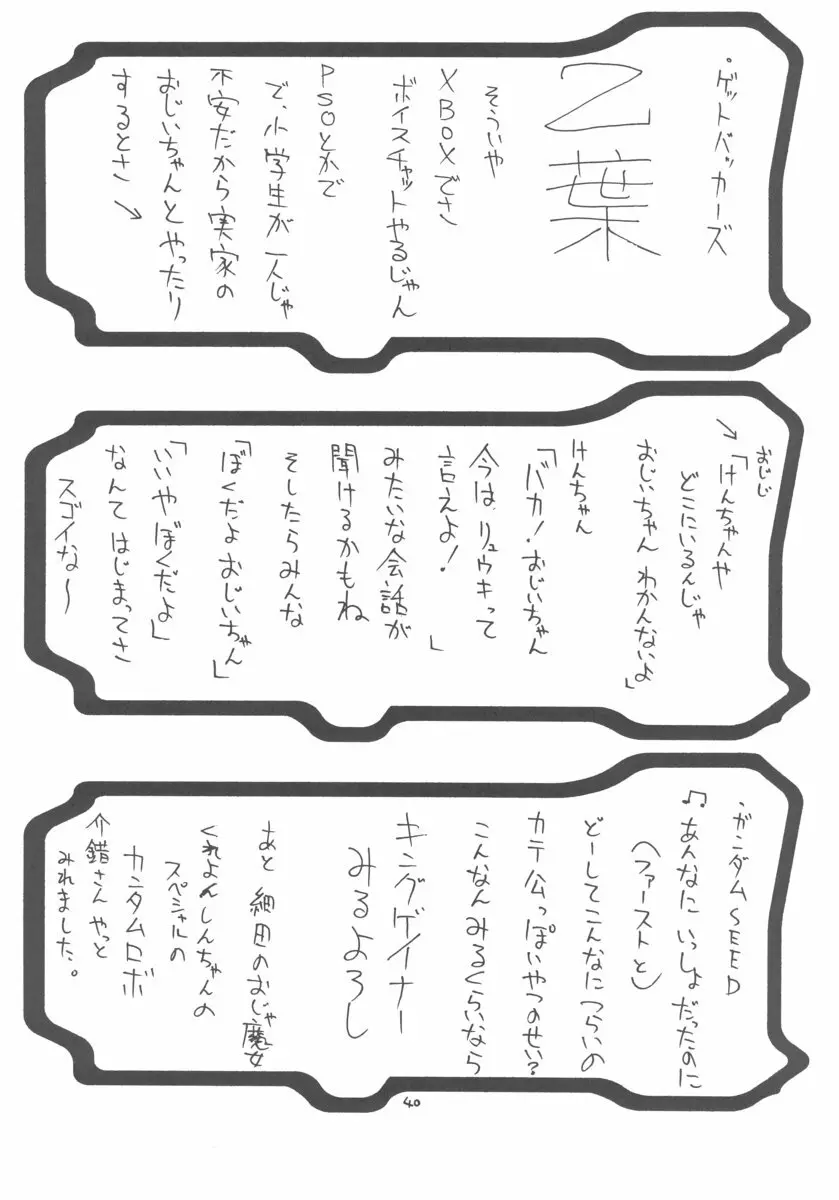 ・ゲットバッカーズ
乙葉
そういや
XBOXでさ
ボイスチャットやるじゃん
PSOとかで
で、小学生が一人じゃ
不安だから実家の
おじいちゃんとやったり
するとさ→
おじじ
→「けんちゃんや
どこにいるんじゃ
おじいちゃん わかんないよ」
けんちゃん
「バカ!おじいちゃん
今は、リュウキって
言えよ!」
みたいな会話が
聞けるかもね
そしたらみんな
「ぼくだよ おじいちゃん」
「いいやぼくだよ」
なんて はじまってさ
スゴイな〜
・ガンダムSEED
♫あんなに いっしょだったのに
(ファーストと)
どーしてこんなに つらいの
カテ公っぽいやつのせい?
こんなんみるくらいなら
キングゲイナー
みるよろし
あと 細田のおじゃ魔女
くれよんしんちゃんの
スペシャルの
カンタムロボ
介錯さん やっと
みれました。
40